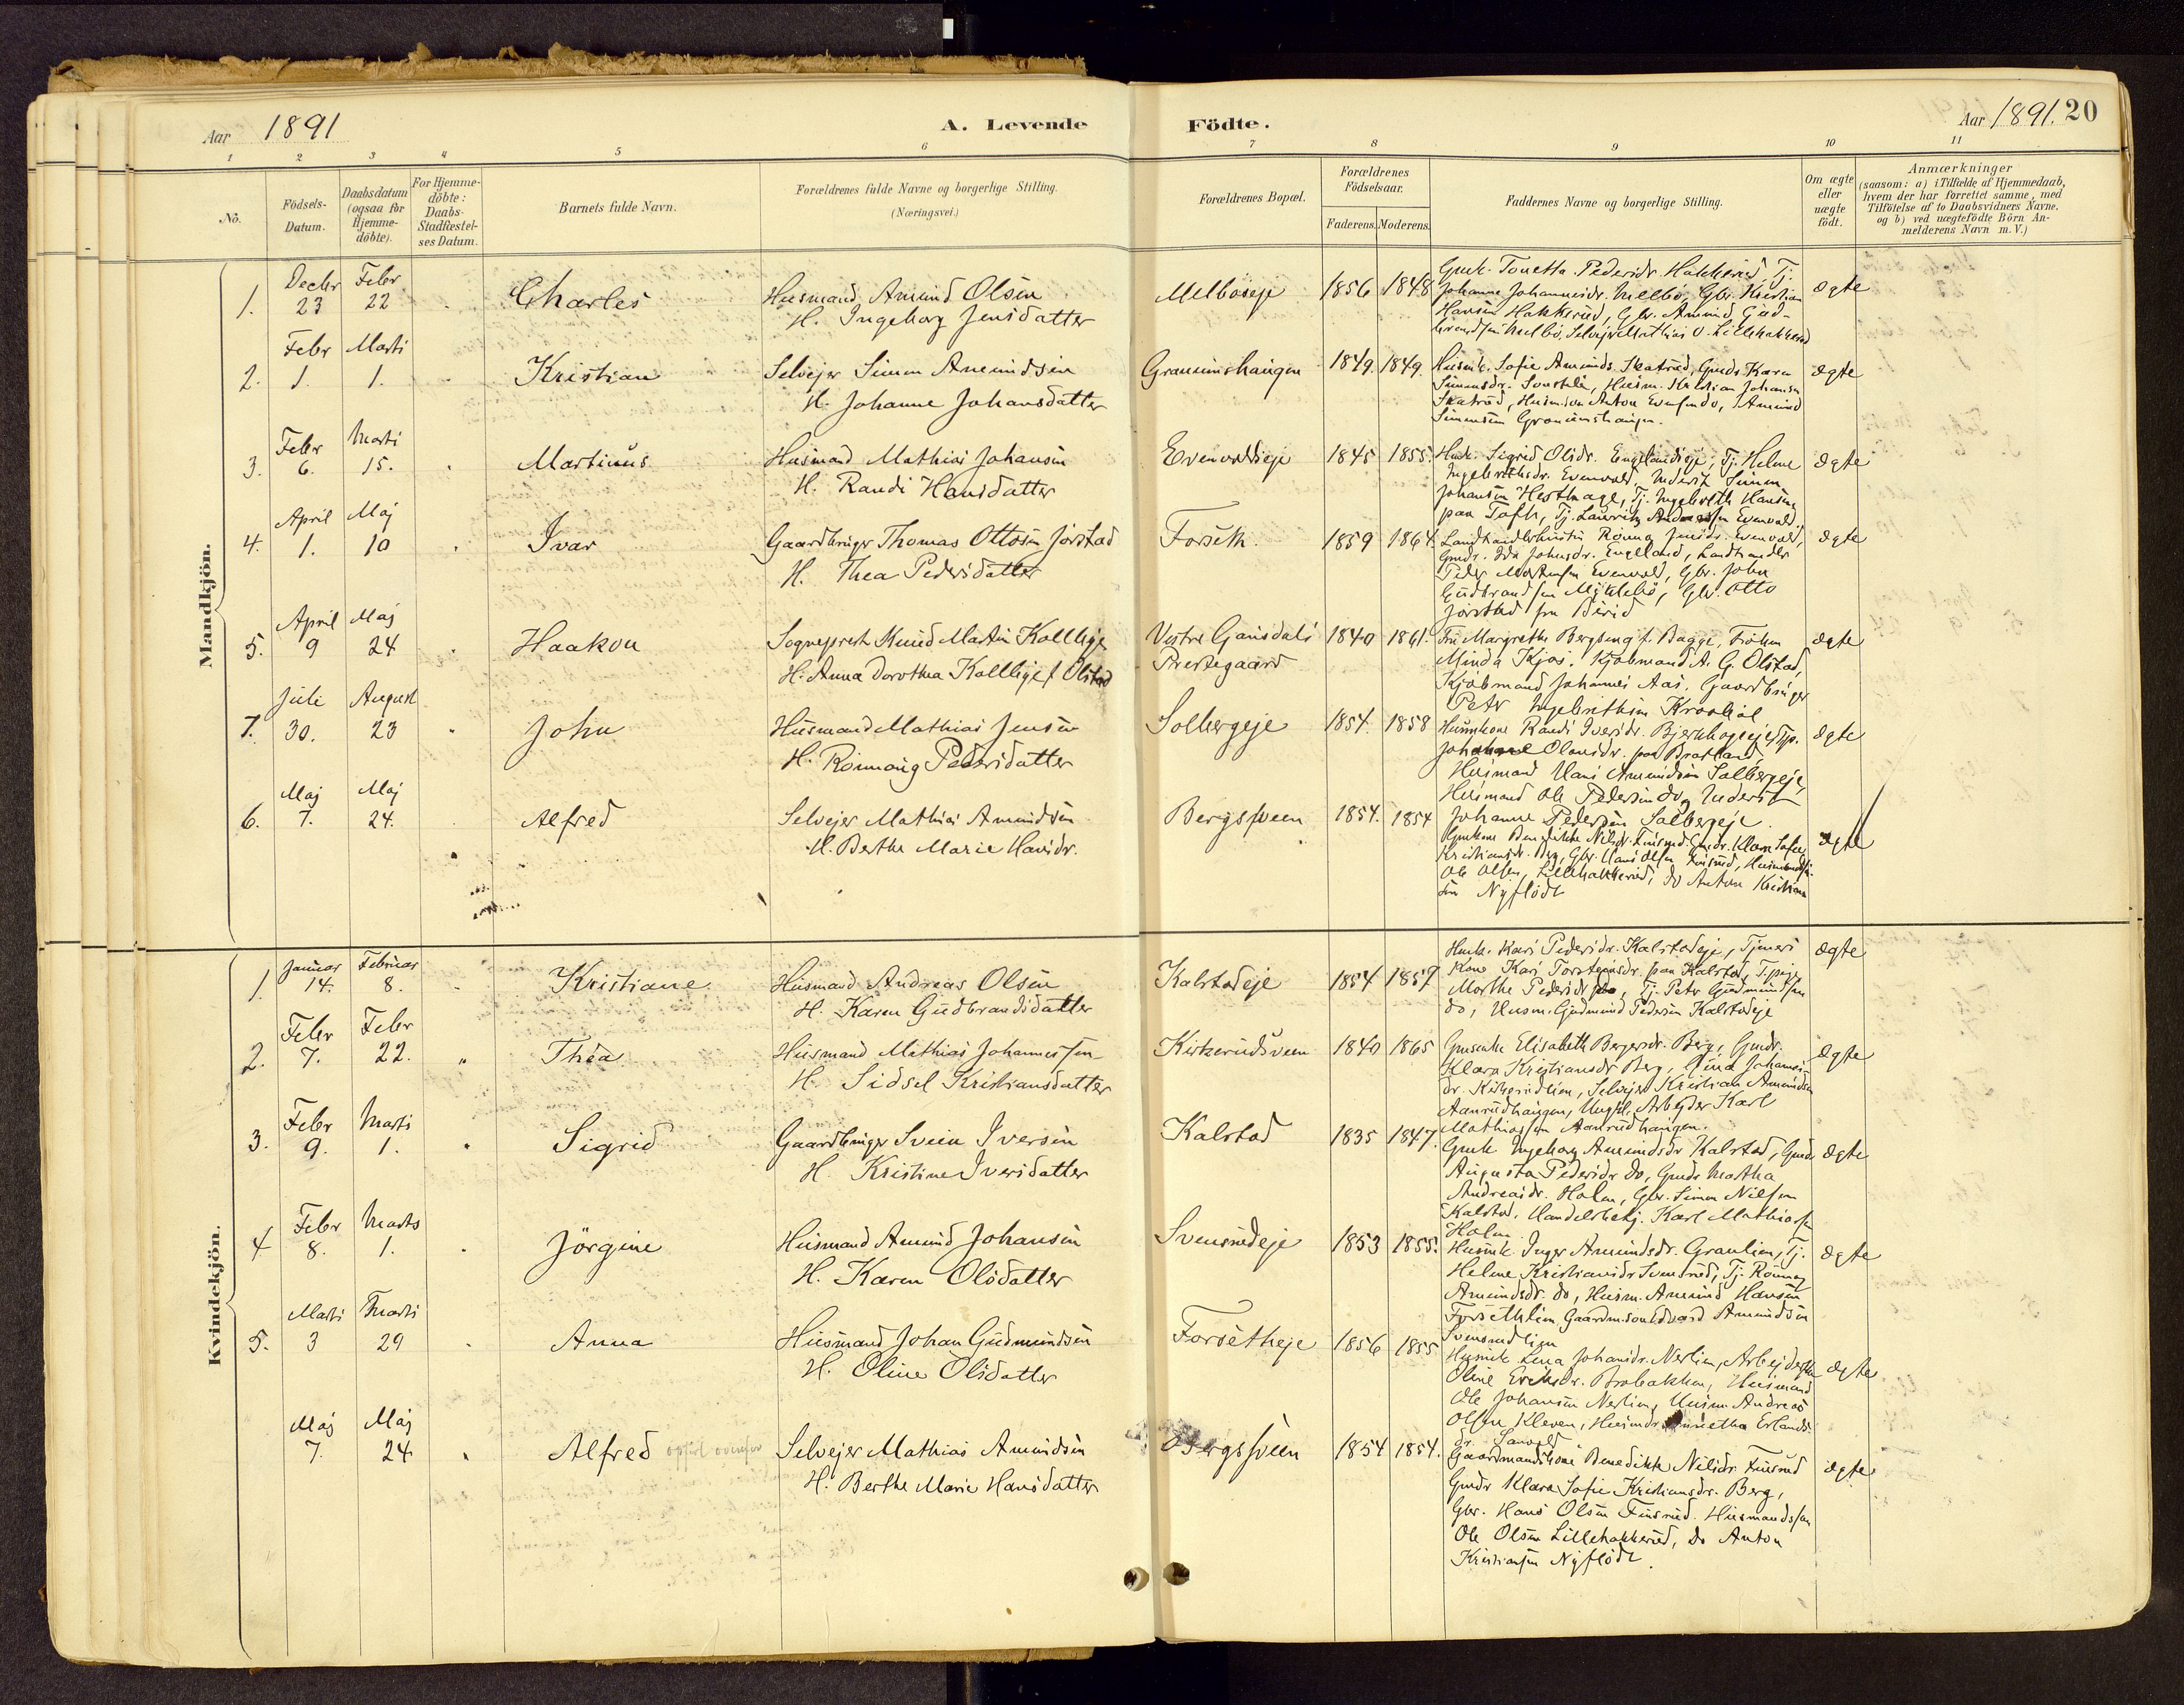 Aar 1891
A. Levende Födte.
Aar 1891. 20
1 2 3 4 5 6 7 8 9 10 11
No.
Födsels-
Datum.
Daabsdatum
(ogsaa for
Hjemme-
döbte).
For Hjemme-
döbte:
Daabs-
Stadfæstel-
ses Datum.
Barnets fulde Navn.
Forældrenes fulde Navne og borgerlige Stilling.
(Næringsvei.)
Forældrenes Bopæl.
Forældrenes
Födselsaar.
Faderens. Moderens.
Faddernes Navne og borgerlige Stilling.
Om ægte
eller
uægte
födt.
Anmærkninger
(saasom: a) i Tilfælde af Hjemmedaab,
hvem der har forrettet samme, med
Tilföielse af to Daabsvidners Navne,
og b) ved uægtefödte Börn An-
melderens Navn m. V.)
Mandkjön.
1. Decbr 23 Febr 22 Charles
Husmand Amund Olsen
H. Ingeborg Jensdatter
Melbøseje 1856 1848
Gmk. Tonetta Pedersdr. Hakkerud, Tj.
Johanne Johannesdr. Melbö, Gbr. Kristian
Hansen Hakkerud, Gbr. Amund Gud-
brandsen Melbö, Selvejer Mathias O. Lillehakkerud
ægte
2. Febr 1. Marts 1. Kristian
Selvejer Simen Amundsen
H. Johanne Johansdatter
Granumshaugen 1849. 1849.
Husmk. Sofie Amunds. Skatrud, Gmds Karen
Simensdr. Husm. Kristian Johansen
Skatrud, Husm.søn Anton Evensen do, Amund
Simensen Granumshaugen.
ægte
3. Febr 6. Marts 15. Martinus
Husmand Mathias Johansen
H. Randi Hansdatter
Evenvoldseje 1845 1855.
Husk. Sigrid Olsdr. Englandseje, Tj. Helene
Ingebrethsdr. Evenvold, Inderst Simen
Johansen Hesthage, Tj. Ingebreth Hansen
paa Toft, Tj. Lauritz Andersen Evenvold.
ægte
4. April 1. Maj 10 Ivar
Gaardbruger Thomas Ottosen Jørstad
H. Thea Pedersdatter
Forseth. 1859 1864.
Landhandlerhustru Rønnaug Jensdr. Evenvold,
Gmdr. Ida Johnsdr. Engeland, Landhandler
Peder Mortensen Evenvold, Gbr. John
Gudbrandsen Myklebö, Gbr. Otto
Jorstad fra Birid
ægte
5. April 9 Maj 24 Haakon
Sogneprest Knud Martin Kolllige
H. Anna Dorothea Kolllige f. Olstad
Vestre Gausdals
Prestegaard 1840 1861.
Fru Margrethe Bergseng f. Bagge, Frøken
Minda Kjos. Kjøbmand A. G. Olstad,
Kjøbmand Johannes Aas. Gaardbruger
Peter Ingebrethsen Kraabøl
ægte
7. Juli 30. August 23 John
Husmand Mathias Jensen
H. Rönnaug Pedersdatter
Solbergeje 1854. 1858
Husmkone Randi Iversdr. Bjerkhageeje, Tjp.
Johanne Olausdr. paa Bratland
Husmand Hans Amundsen Solbergeje,
Husmand Ole Pedersen do, Inderst
Johannes Pedersen Solbergeje.
ægte
6. Maj 7. Maj 24. Alfred
Selvejer Mathias Amundsen
H. Berthe Marie Hansdr.
Bergssveen 1854. 1854
Gmkone Benedikte Nilsdr. Finsrud. Gmdr. Klara Sofie
Kristiansdr. Berg, Gbr. Hans Olsen Finsrud, Husmandss.
Ole Olsen, Lillehakkerud, do Anton Kristian
sen Nyflödt
ægte
Kvindekjön.
1. Januar 14. Februar 8. Kristiane
Husmand Andreas Olsen
H. Karen Gudbrandsdatter
Kalstadeje 1854 1857
Husk. Kari Pedersdr. Kalstadeje, Tjeners
Kone Kari Torsteinsdr. paa Kalstad, T.pige
Marthe Pedersdr do, Tj. Peter Gudmundsen
do, Husm. Gudmund Pedersen Kalstadeje
ægte
2. Febr 7. Febr 22. " Thea
Husmand Mathias Johannessen
H. Sidsel Kristiansdatter
Kirkerudsveen 1840 1865
Gmsenke Elisabeth Bergersdr. Berg, Gmdr.
Klara Kristiansdr Berg, Johannes-
dr. Kirkerudlien, Selvejer Kristian Amundsen
Aanrudhaugen, Ungkl. Arbejder Karl
Mathiassen Aanrudhaugen.
ægte
3. Febr 9. Marts 1. Sigrid
Gaardbruger Svein Iversen
H. Kristine Iversdatter
Kalstad 1835 1847.
Gmk Ingeborg Amundsdr Kalstad, Gmds
Augusta Pedersdr do, Gmds Martha
Andreasdr. Holen, Gbr. Simen Nilsen
Kalstad, Handelsbetj. Karl Mathiassen
Holen.
ægte
4 Febr 8. Marts 1. Jörgine
Husmand Amund Johansen
H. Karen Olsdatter
Svensrudeje 1853 1855.
Husmk. Inger Amundsdr. Granlien, Tj.
Helene Kristiansdr Svensrud, Tj. Rönnaug
Amundsdr. do, Husm. Amund Hansen
Forsethlien Gaardm.søn Edvard Amundsen
Svensrudlien
ægte
5. Marts 3 Marts 29 Anna
Husmand Johan Gudmundsen
H. Oline Olsdatter
Forsetheje 1856 1855
Husmk Lena Johansdr. Nerlien, Arbejderske
Oline Eriksdr. Brobakken, Husmand
Ole Johansen Nerlien, Husm Andreas
Olsen Kleven, Husmdr Annetha Erlands-
dr.
ægte
Maj 7. Maj 24 Alfred opført ovenfor
Selvejer Mathias Amundsen
H. Berthe Marie Hansdatter
Bergssveen 1854 1854.
Gaardmandskone Benedikte Nilsdr. Finsrud
Gmdr Klara Sofie Kristiansdr. Berg,
Gbr. Hans Olsen Finsrud. Husmandssøn
Ole Olsen Lillehakkerud, do Anton
Kristiansen Nyflödt.
ægte